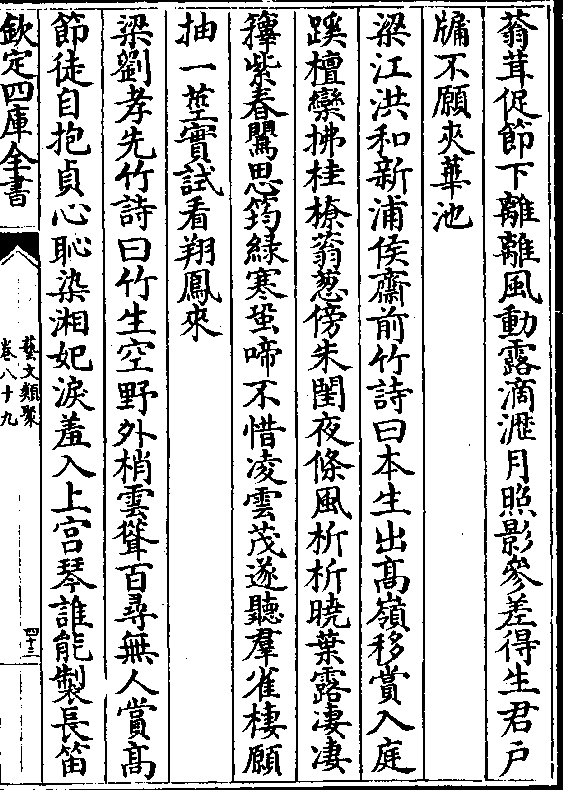 蓊茸促節下離離風動露滴瀝月照影參差得生君戶
牖不願夾華池
梁江洪和新浦侯齋前竹詩曰本生出髙嶺移賞入庭
蹊檀欒拂桂橑蓊葱傍朱閨夜條風析析曉葉露凄凄
籜紫春鸎思筠緑寒蛩啼不惜凌雲茂遂聽羣雀棲願
抽一莖實試看翔鳳來
梁劉孝先竹詩曰竹生空野外梢雲聳百尋無人賞髙
節徒自抱貞心恥染湘妃淚羞入上宫琴誰能製長笛
欽定四庫全書
藝文類聚
卷八十九
四十三